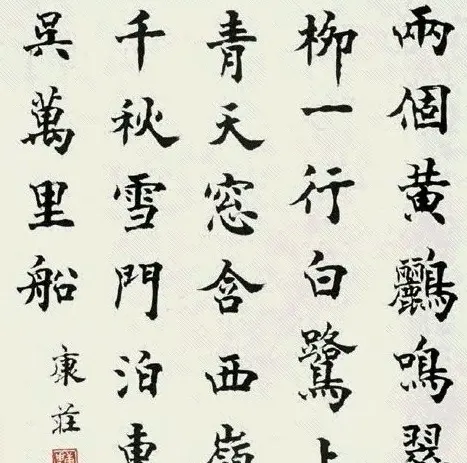 兩個黄鸝鳴翠
柳一行白鷺上
青天窓含西嶺
千秋雪門泊東
吳萬里船
康莊